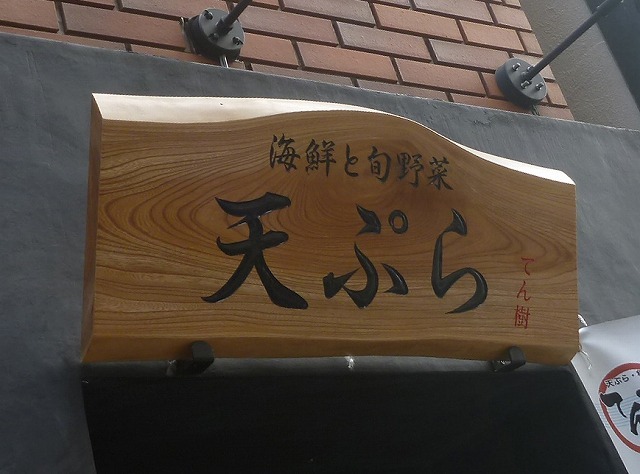 海鮮と旬野菜
天ぷら
てん樹
天ぷら・
てん